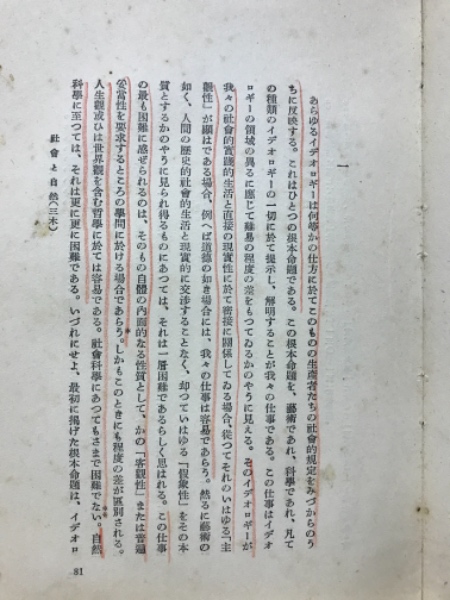 一
あらゆるイデオロギーは何等かの仕方に於てこのものの生産者たちの社會的規定をみづからのう
ちに反映する。これはひとつの根本命題である。この根本命題を、藝術であれ、科學であれ、凡て
の種類のイデオロギーの一切に於て提示し、解明することが我々の仕事である。この仕事はイデオ
ロギーの領域の異るに應じて難易の程度の差をもつてゐるかのやうに見える。そのイデオロギーが
我々の社會的實踐的生活と直接の現實性に於て密接に關係してゐる場合、從つてそれのいはゆる「主
觀性」が顯はである場合、例へば道德の如き場合には、我々の仕事は容易であらう。然るに藝術の
如く、人間の歷史的社會的生活と現實的に交渉することなく、却つていはゆる「假象性」をその本
質とするかのやうに見られ得るものにあつては、それは一層困難であるらしく思はれる。この仕事
の最も困難に感ぜられるのは、そのもの自體の內面的なる性質として、かの「客觀性」または普遍
妥當性を要求するところの學問に於ける場合であらう。しかもこのときにも程度の差が區別される。
人生觀或ひは世界觀を含む哲學に於ては容易である。社會科學にあつてもさまで困難でない。自然
科學に至つては、それは更に更に困難である。いづれにせよ、最初に揭げた根本命題は、イデオロ
社會と自然(三木)
81